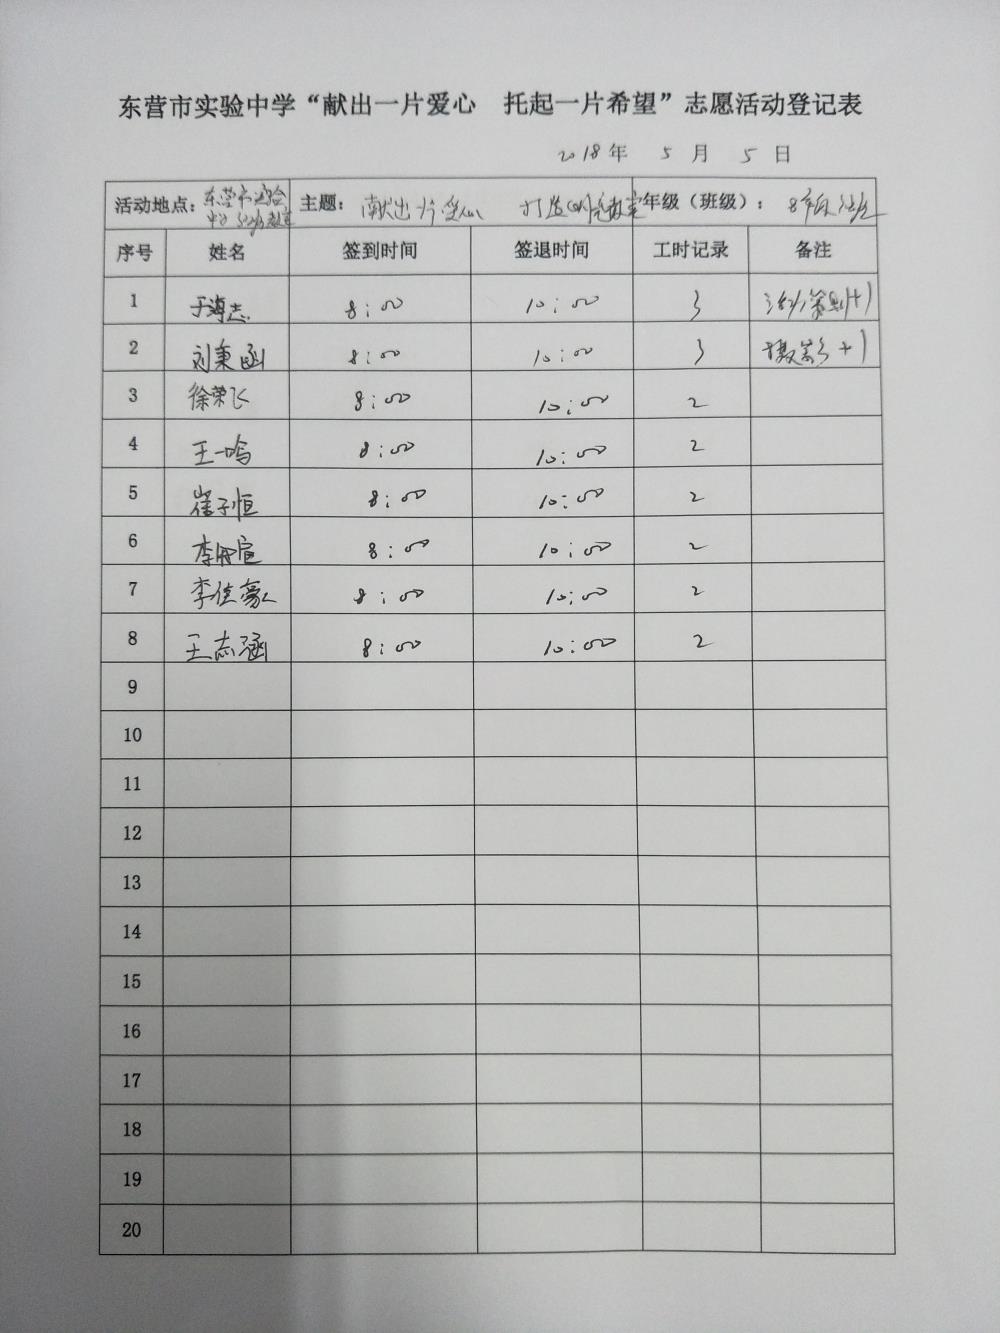 东营市实验中学“献出一片爱心 托起一片希望”志愿活动登记表
2018年 5 月 5 日
活动地点：东营市实验 主题：献出一片爱心 打造 教室 年级（班级）：8
序号 姓名 签到时间 签退时间 工时记录 备注
1 于海志 8:00 10:00 3 活动策划+1
2 刘秉函 8:00 10:00 3 摄影+1
3 徐荣飞 8:00 10:00 2
4 王一鸣 8:00 10:00 2
5 崔子恒 8:00 10:00 2
6 李 宣 8:00 10:00 2
7 李佳豪 8:00 10:00 2
8 王志涵 8:00 10:00 2
9
10
11
12
13
14
15
16
17
18
19
20